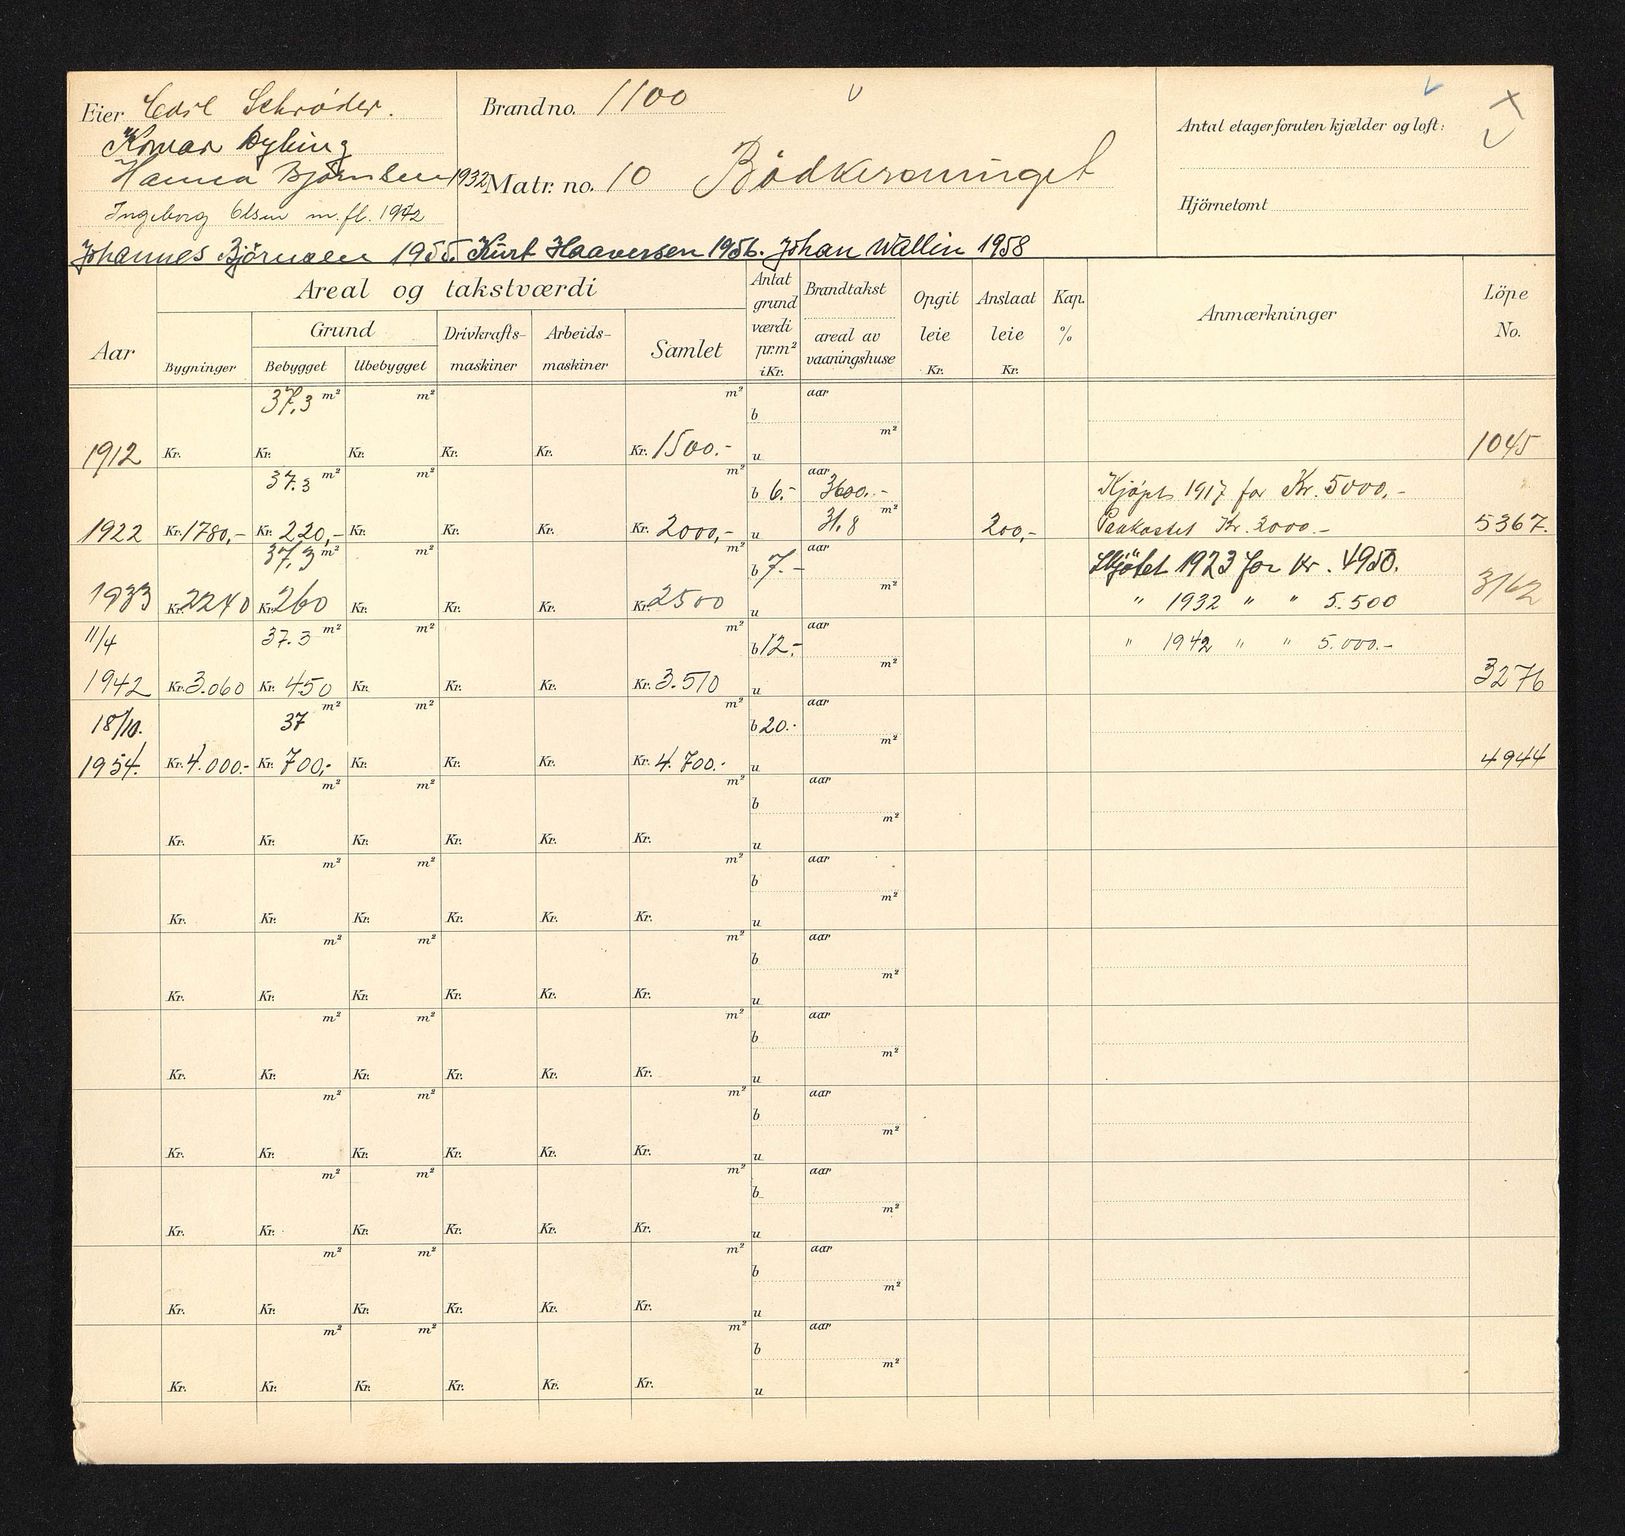 Eier Carl Schrøder.
Konrad Dybing
Hanna Bjørnsen 1932
Ingeborg Olsen m. fl. 1942
Johannes Björnsen 1955. Kurt Haaversen 1956. Johan Wallin 1958
Brand no. 1100
Matr. no. 10 Bødkersmuget
Antal etager foruten kjælder og loft:
Hjörnetomt
Aar
Areal og takstværdi
Grund
Bygninger Bebygget Ubebygget
Drivkrafts-maskiner
Arbeids-maskiner
Samlet
Antat grund værdi pr. m² i Kr.
Brandtakst
areal av vaaningshuse
Opgit leie Kr.
Anslaat leie Kr.
Kap. %
Anmærkninger
Löpe No.
37,3 m² m² m² b aar
1912 Kr. Kr. Kr. Kr. Kr. Kr. 1500.- u m² 1045
37.3 m² m² m² b 6.- aar 3600.- Kjøpt 1917 for Kr. 5000,-
1922 Kr. 1780,- Kr. 220,- Kr. Kr. Kr. Kr. 2000,- u 31.8 m² 200,- Paakostet Kr. 2000.- 5367.
37,3 m² m² m² b 7.- aar Skjötet 1923 for Kr. 4950.
1933 Kr. 2240 Kr. 260 Kr. Kr. Kr. Kr. 2500 u m² " 1932 " " 5.500 3162
11/4 37.3 m² m² m² b 12.- aar " 1942 " " 5.000.-
1942 Kr. 3.060 Kr. 450 Kr. Kr. Kr. Kr. 3.510 u m² 3276
18/10. 37 m² m² m² b 20.- aar
1954. Kr. 4.000.- Kr. 700,- Kr. Kr. Kr. Kr. 4.700.- u m² 4944
m² m² m² b aar
Kr. Kr. Kr. Kr. Kr. Kr. u m²
m² m² m² b aar
Kr. Kr. Kr. Kr. Kr. Kr. u m²
m² m² m² b aar
Kr. Kr. Kr. Kr. Kr. Kr. u m²
m² m² m² b aar
Kr. Kr. Kr. Kr. Kr. Kr. u m²
m² m² m² b aar
Kr. Kr. Kr. Kr. Kr. Kr. u m²
m² m² m² b aar
Kr. Kr. Kr. Kr. Kr. Kr. u m²
m² m² m² b aar
Kr. Kr. Kr. Kr. Kr. Kr. u m²
m² m² m² b aar
Kr. Kr. Kr. Kr. Kr. Kr. u m²